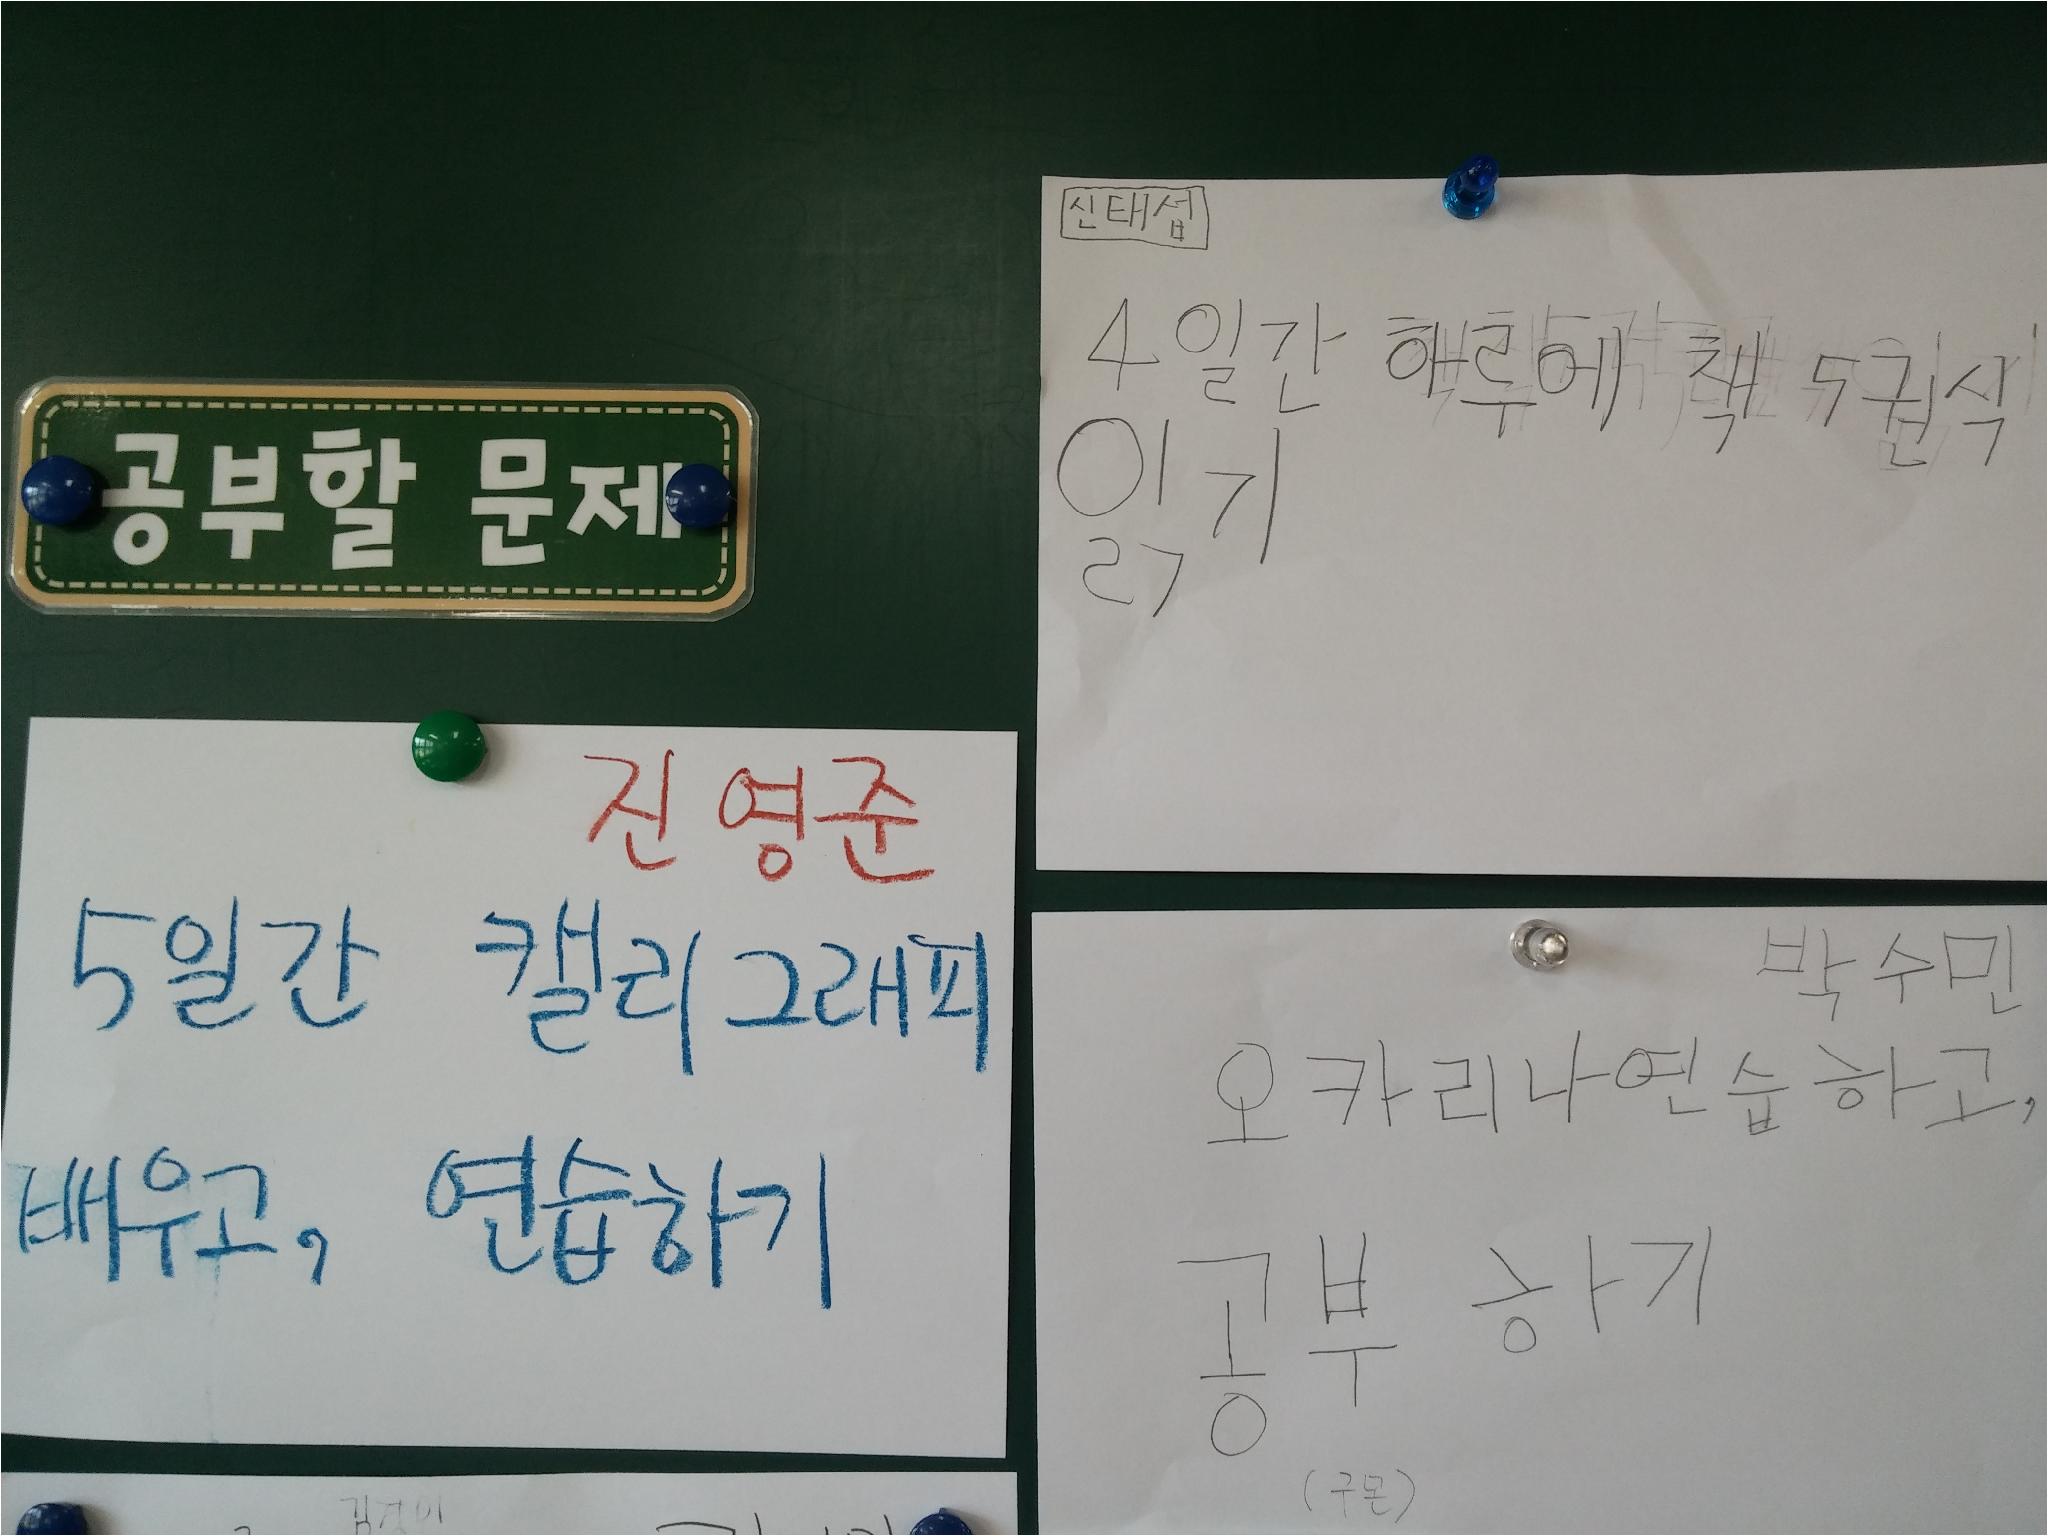 공부할 문제
신태섭
4일간 하루에 책 5권식
읽기
진영준
5일간 캘리그래피
배우고, 연습하기
박수민
오카리나연습하고,
공부 하기
(구몬)